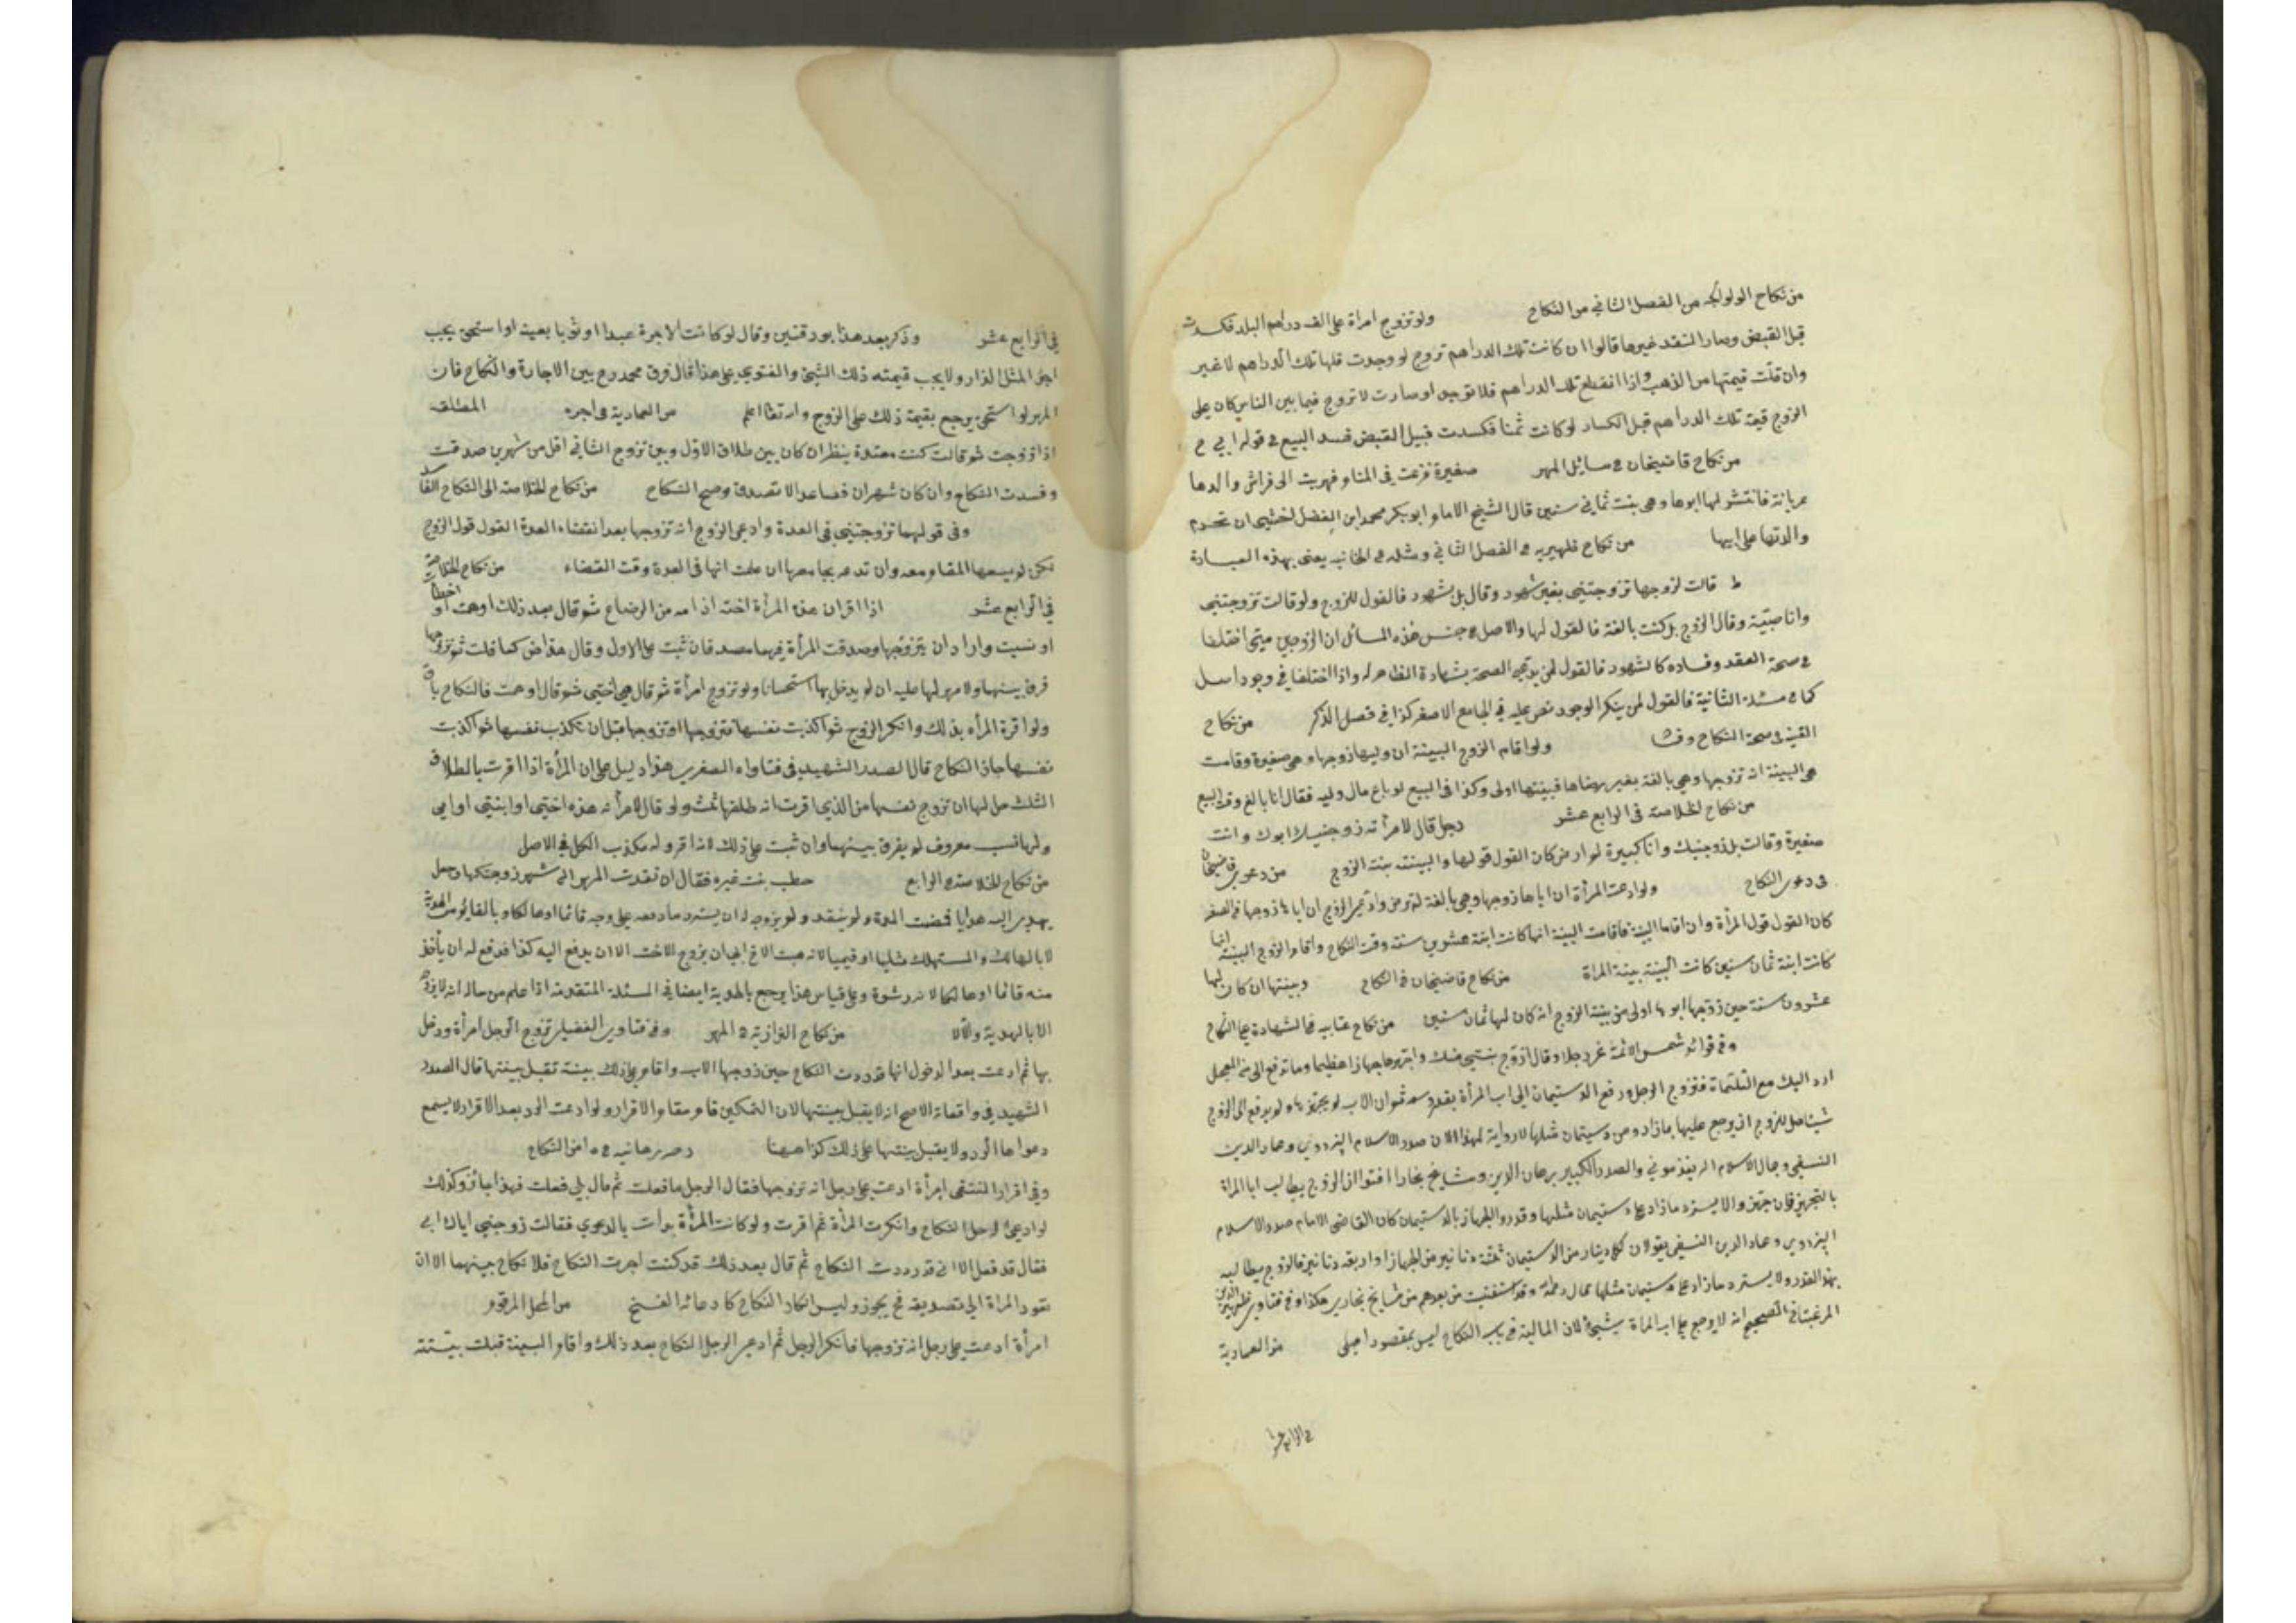 من نكاح الولوالجيه من الفصل الثاني من النكاح ولو تزوج امراة على الف دراهم البلد فكسدت
قبل القبض وصار النقد غيرها قالوا ان كانت تلك الدراهم تروج لو وجدت فلها تلك الدراهم لا غير
وان قلت قيمتها من الذهب واذا انقطع تلك الدراهم فلا توجد او صارت لا تروج فيما بين الناس كان على
الزوج قيمة تلك الدراهم قبل الكساد لو كانت ثمنا فكسدت قبيل القبض فسد البيع في قول ابي ح
من نكاح قاضيخان في مسائل المهر صغيرة فزعت في المنام فهربت الى فراش والدها
عريانة فانتشر لها ابوها وهي بنت ثماني سنين قال الشيخ الامام ابو بكر محمد ابن الفضل اخشى ان تحرم
والدتها على ابيها من نكاح ظهيريه في الفصل الثاني ومثله في الخانيه يعني بهذه العبارة
ط قالت لزوجها تزوجتني بغير شهود وقال بل بشهود فالقول للزوج ولو قالت تزوجتني
وانا صبيّة وقال الزوج بل كنت بالغة فالقول لها والاصل في جنس هذه المسائل ان الزوجين متى اختلفا
في صحة العقد وفساده كالشهود فالقول لمن يدعي الصحة بشهادة الظاهر له واذا اختلفا في وجود اصل
كما في مسئلة الثانية فالقول لمن ينكر الوجود نص عليه في الجامع الاصغر كذا في فصل الذكر من نكاح
القنيه في صحة النكاح ولو اقام الزوج البينة ان وليها زوجها وهي صغيرة وقامت
هي البينة انه تزوجها وهي بالغة بغير رضاها فبينتها اولى وكذا في البيع لو باع مال وليه فقال انا بالغ وقت البيع
من نكاح الخلاصة في الرابع عشر رجل قال لامرأته زوجنيك ابوك وانت
صغيرة وقالت بل زوجنيك وانا كبيرة كان القول قولها والبينة بينة الزوج من دعوى قاضيخان
في دعوى النكاح ولو ادعت المرأة ان اباها زوجها وهي بالغة لم ترض وادعى الزوج ان اباها زوجها في الصغر
كان القول قول المرأة وان اقاما البينة فاقامت البينة انها كانت ابنة عشرين سنة وقت النكاح واقام الزوج البينة انها
كانت ابنة ثمان سنين كانت البينة بينة المراة من نكاح قاضيخان في النكاح وبينتها ان كان لها
عشرون سنة حين زوجها ابوها اولى من بينة الزوج انه كان لها ثمان سنين من نكاح عتابيه في الشهادة على النكاح
وفي فوائد شمس الائمة غر رجلا وقال ازوج بنتي منك واجهزها جهازا عظيما وما تدفع الى من المعجل
ارد اليك مع فتزوج الرجل ودفع الدستيمان الى اب المرأة بقدر وسعه ثم ان الاب لم يجهزها ولم يدفع الى الزوج
شيئا هل للزوج ان يرجع عليها بما زاد من دستيمان مثلها لا رواية لهذا الا ان صدر الاسلام البزدوي وعماد الدين
النسفي وجمال الاسلام والصدر الكبير برهان الدين ومشايخ بخارا افتوا ان الزوج يطالب ابا المراة
بالتجهيز فان جهز والا يسترد ما زاد على دستيمان مثلها وقدر الجهاز بالدستيمان كان القاضي الامام صدر الاسلام
البزدوي وعماد الدين النسفي يقولان لكل دينار من الدستيمان ثلثة دنانير من الجهاز او اربعة دنانير فالزوج يطالبه
بهذا القدر ولا يسترد ما زاد على دستيمان مثلها وقد استفتيت من بعدهم من مشايخ بخارى هكذا وفي فتاوى ظهير الدين
المرغيناني الصحيح انه لا يرجع على اب المراة بشيئ لان المالية في باب النكاح ليس بمقصود اصلي من العمادية
في الرابع عشر
في الرابع عشر وذكر بعد هذا بورقتين وقال لو كانت الاجرة عبدا او ثوبا بعينه او استحق يجب
اجر المثل الدار ولا يجب قيمته ذلك الشيئ والفتوى على هذا قال فرق محمد رح بين الاجارة والنكاح فان
المهر لو استحق يرجع بقيمة ذلك على الزوج من العمادية في اجره المطلقه
اذا تزوجت ثم قالت كنت معتدة ينظر ان كان بين طلاق الاول وبين تزوج الثاني اقل من شهرين صدقت
وفسدت النكاح وان كان شهران فصاعدا لا تصدق وصح النكاح من نكاح الخلاصه الى النكاح الفاسد
وفي قولهما تزوجتني في العدة وادعى الزوج انه تزوجها بعد انقضاء العدة القول قول الزوج
لكن لم يسعها المقام معه وان تدعه يجامعها ان علمت انها في العدة وقت القضاء من نكاح الخلاصة
في الرابع عشر اذا اقر ان هذه المرأة اخته او امه من الرضاع ثم قال بعد ذلك اوهمت او اخطأت
او نسيت واراد ان يتزوجها وصدقت المرأة فيهما مصدقان ثبت على الاول وقال هذا حق كما قلت ثم تزوجها
فرق بينهما ولا مهر لها عليه ان لم يدخل بها استحسانا ولو تزوج امرأة ثم قال هي اختي ثم قال اوهمت فالنكاح باق
ولو اقرت المرأه بذلك وانكر الزوج ثم اكذبت نفسها فتزوجها او تزوجها قبل ان تكذب نفسها ثم اكذبت
نفسها جاز النكاح قال الصدر الشهيد في فتاواه الصغرى هذا دليل على ان المرأة اذا اقرت بالطلاق
الثلث حل لها ان تزوج نفسها من الذي اقرت انه طلقها ثلثا ولو قال لامرأته هذه اختي او ابنتي او امي
ولها نسب معروف لم يفرق بينهما وان ثبت على ذلك لانه اقر وله مكذب الكل في الاصل
من نكاح الخلاصة في الرابع خطب بنت غيره فقال ان نقدت المهر الى شهر زوجتكها وجعل
يهدي اليه هدايا فمضت المدة ولم ينقد ولم يزوجه له ان يسترد ما دفعه على وجه قائما او هالكا وبالقائم من الهدية
لا بالهالك والمستهلك مثليا او قيميا لانه هبة الاخ ابى ان يزوج الاخت الا ان يدفع اليه كذا فدفع له ان يأخذ
منه قائما او هالكا لانه رشوة وعلى قياس هذا يرجع بالهدية ايضا في المسئلة المتقدمة اذا علم من حاله انه لا يزوجه
الا بالهدية والا لا من نكاح البزازية في المهر وفي فتاوى الفضلي تزوج الرجل امرأة ودخل
بها ثم ادعت بعد الدخول انها قد ردت النكاح حين زوجها الاب واقام على ذلك بينة تقبل بينتها قال الصدر
الشهيد في واقعاته الاصح انه لا يقبل بينتها لان التمكين قام مقام الاقرار ولو ادعت الرد بعد الاقرار لا يسمع
دعواها الرد ولا يقبل بينتها على ذلك كذا ههنا من النكاح
وفي اقرار المنتقى امرأة ادعت على رجل انه تزوجها فقال الرجل ما فعلت ثم قال بلى فعلت فهذا جائز وكذلك
لو ادعى الرجل النكاح وانكرت المرأة ثم اقرت ولو كانت المرأة بدأت بالدعوى فقالت زوجني اياك ابي
فقال قد فعل الا اني قد رددت النكاح ثم قال بعد ذلك قد كنت اجزت النكاح فلا نكاح بينهما الا ان
تعود المراة الى تصديقه فح يجوز وليس انكار النكاح كادعائه الفسخ من المحل المرقوم
امرأة ادعت على رجل انه تزوجها فانكر الرجل ثم ادعى الرجل النكاح بعد ذلك واقام البينة قبلت بينته